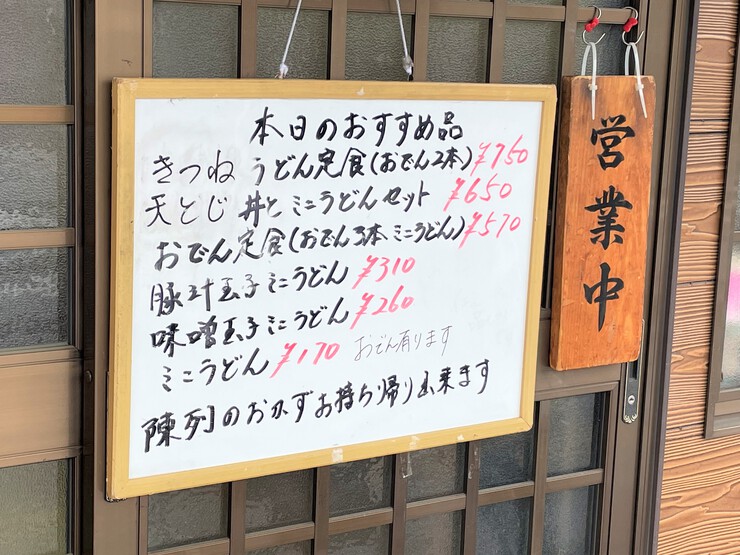 本日のおすすめ品
きつね うどん定食(おでん2本)¥750
天とじ 丼と ミニうどんセット ¥650
おでん定食(おでん3本 ミニうどん)¥570
豚汁玉子ミニうどん ¥310
味噌玉子ミニうどん ¥260
ミニうどん ¥170 おでん有ります
陳列のおかずお持ち帰り出来ます
営業中